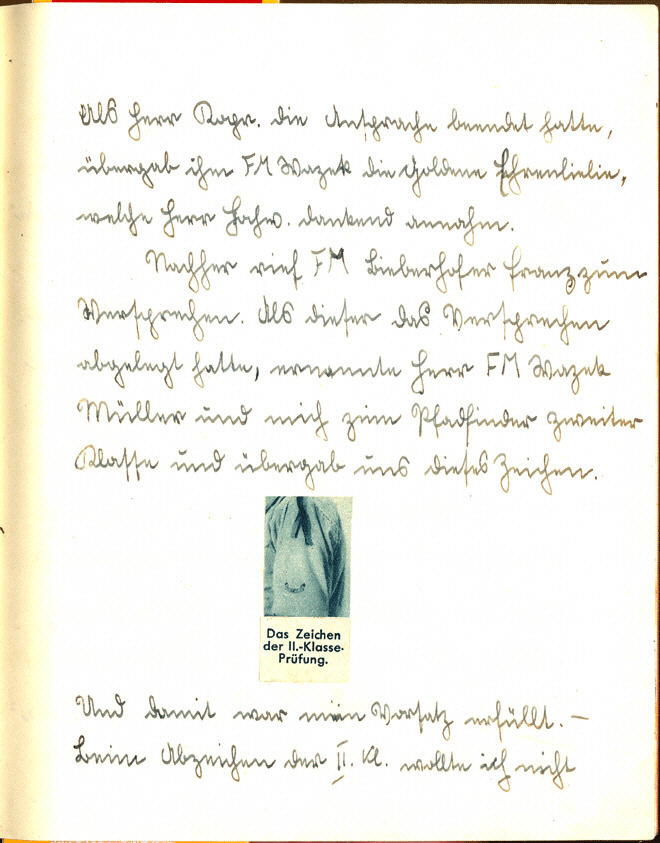 Als Herr Kapr. die Ansprache beendet hatte,
übergab ihm FM Wazek die Goldene Ehrenlilie,
welche Herr Hochw. dankend annahm.
Nachher rief FM Bieberhofer Franz zum
Versprechen. Als dieser das Versprechen
abgelegt hatte, ernannte Herr FM Wazek
Müller und mich zum Pfadfinder zweiter
Klasse und übergab uns dieses Zeichen.
Das Zeichen
der II.-Klasse-
Prüfung.
Und damit war mein Vorsatz erfüllt. —
Beim Abzeichen der II. Kl. wollte ich nicht